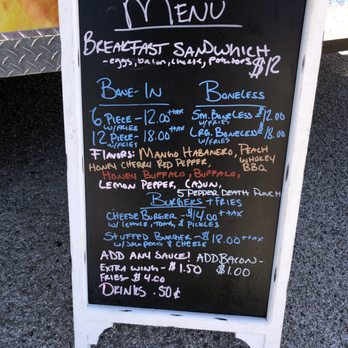 MENU
BREAKFAST SANDWHICH
-eggs, bacon, cheese, potatoes $12
BONE-IN BONELESS
6 PIECE-12.00 +tax Sm. BONELESS $12.00
W/FRIES W/FRIES
12 PIECE-18.00 +tax LRG. BONELESS $18.00
W/FRIES W/FRIES
FLAVORS: MANGO HABANERO, PEACH
HONEY CHERRY RED PEPPER, WHISKEY
BBQ
HONEY BUFFALO, BUFFALO,
LEMON PEPPER, CAJUN,
5 PEPPER DEATH PUNCH
BURGERS + FRIES
CHEESE BURGER - $14.00 +tax
W/ LETTUCE, TOM, & PICKLES
STUFFED BURGER - $18.00 +tax
W/ JALAPENO & CHEESE
ADD ANY SAUCE! ADD BACON-
EXTRA WING - $1.50 $1.00
FRIES - $4.00
DRINKS .50¢